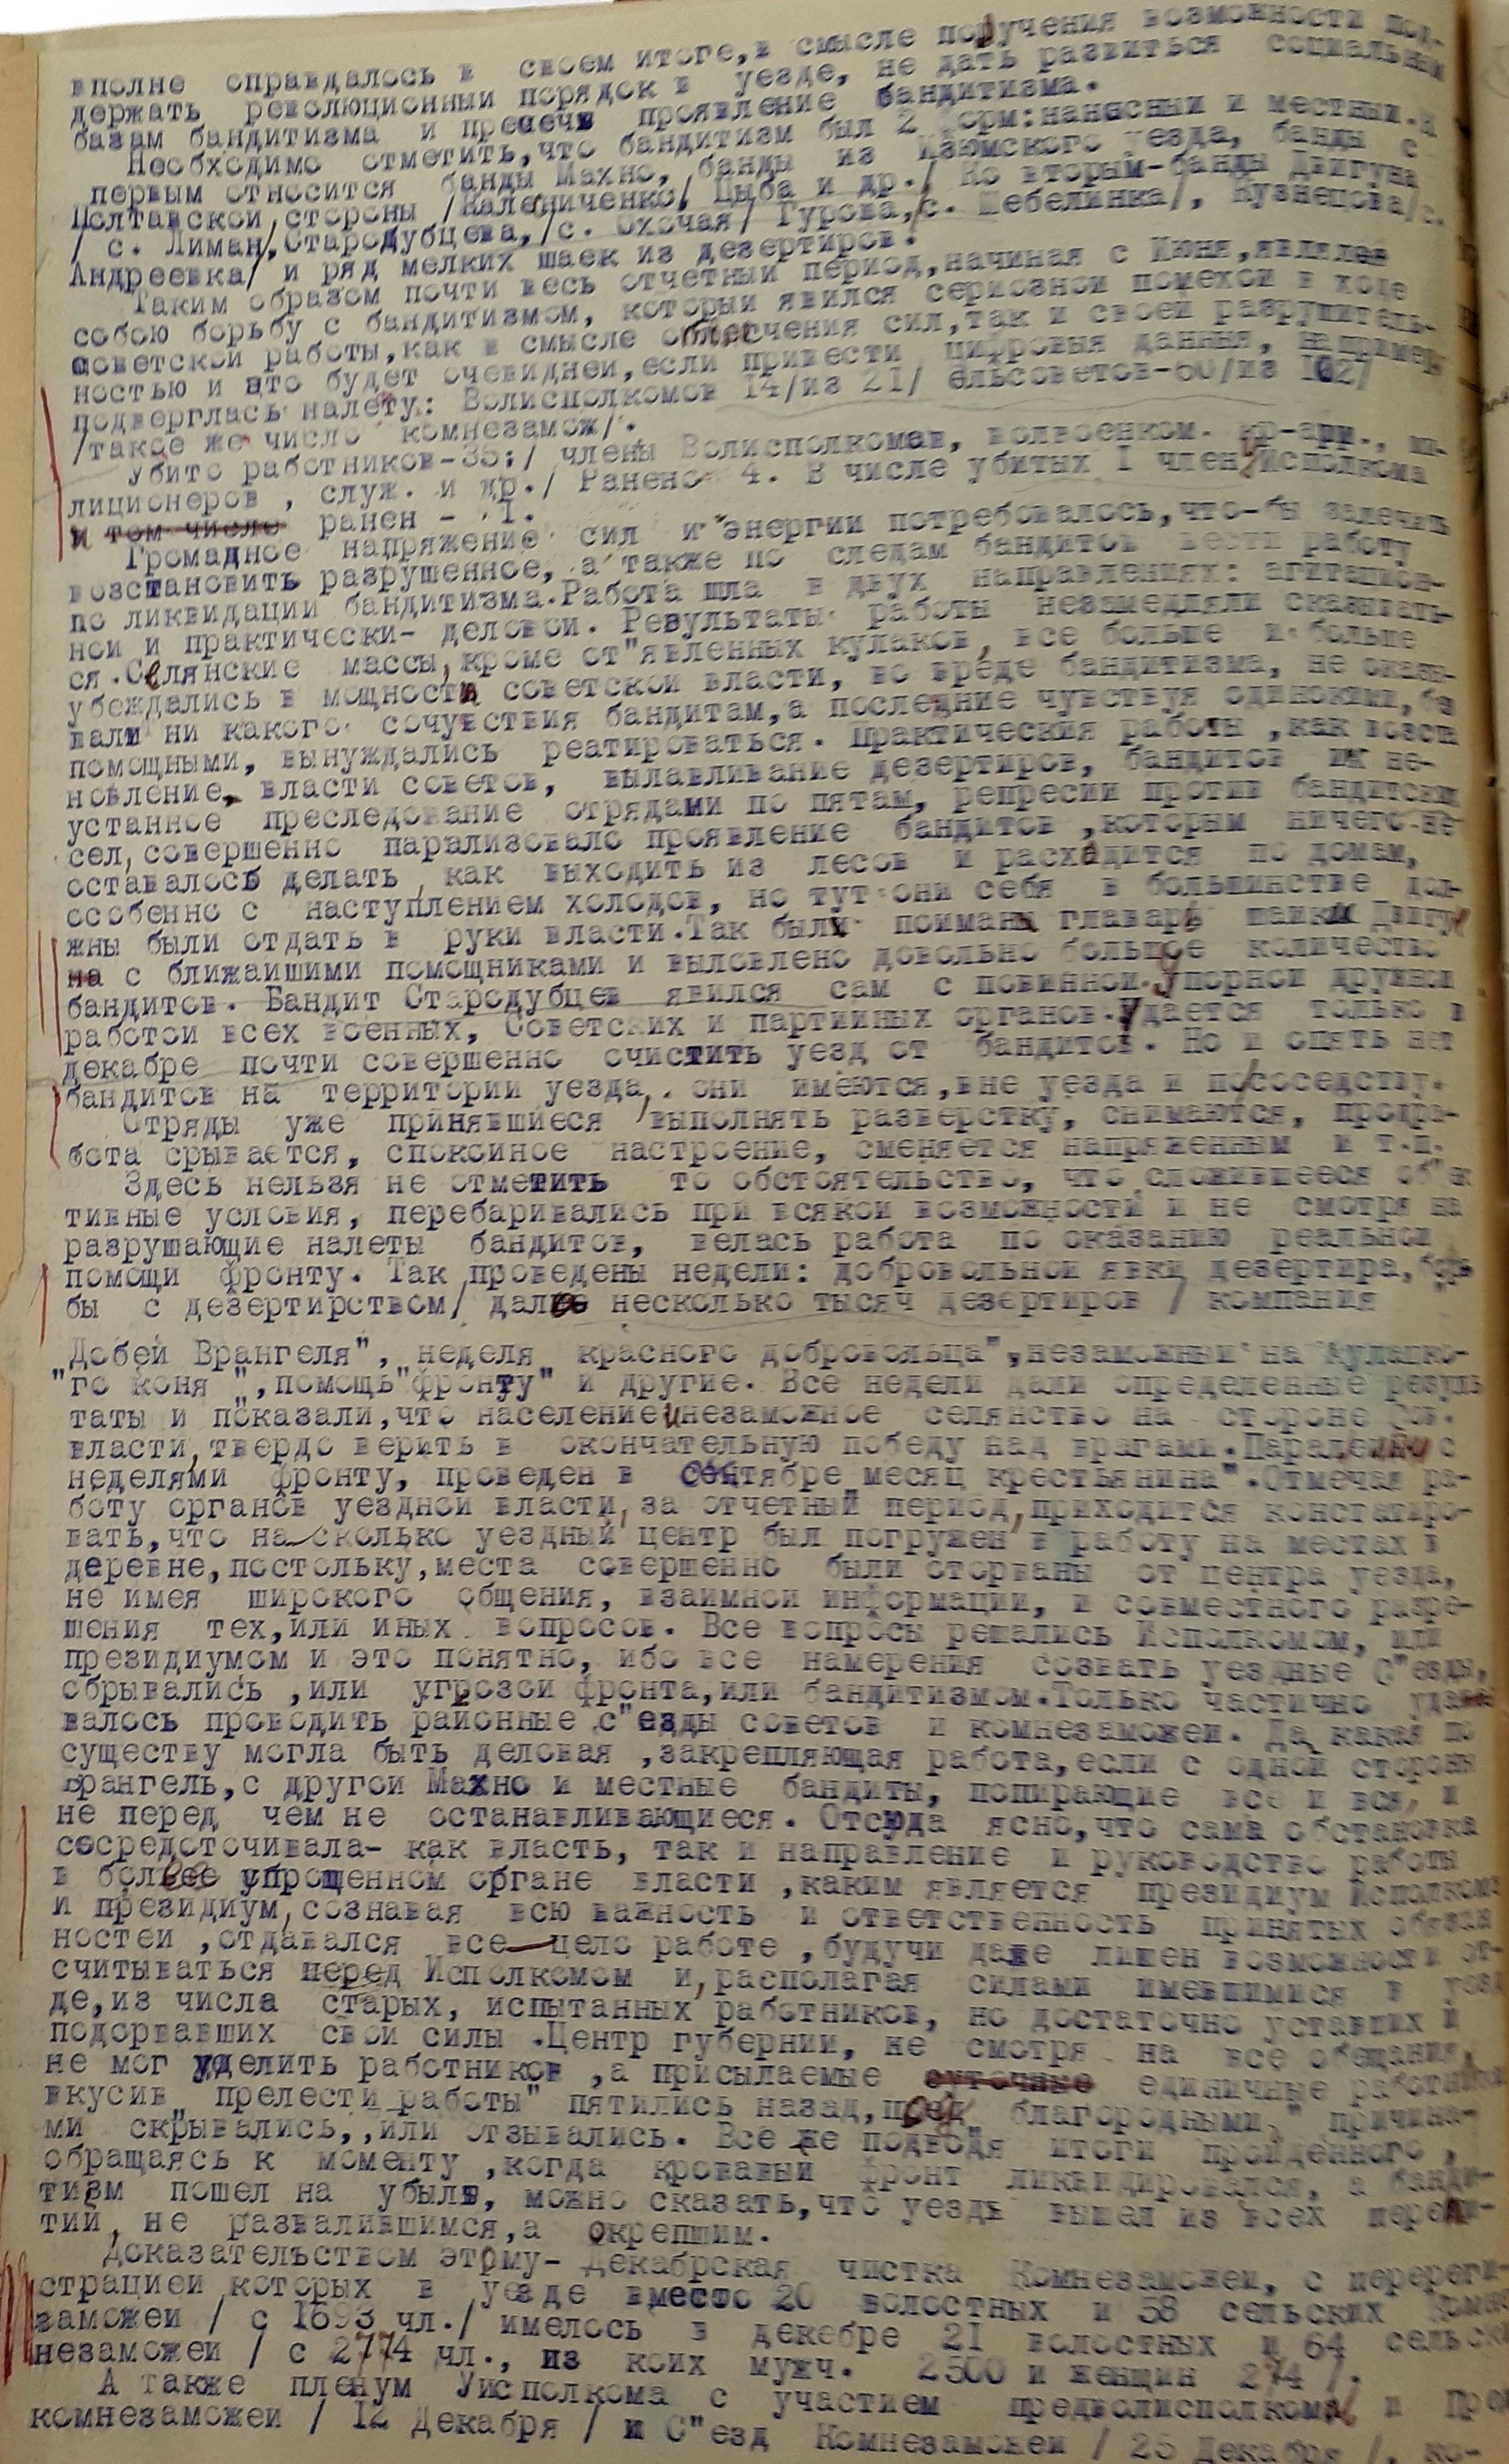 вполне оправдалось в своем итоге, в смысле получения возможности под-
держать революционный порядок в уезде, не дать развиться социальным
базам бандитизма и пресечь проявление бандитизма.
Необходимо отметить, что бандитизм был 2 форм: наносный и местный. К
первым относится банды Махно, банды из Изюмского уезда, банды с
Полтавской стороны /Калениченко, Цыба и др./ Ко вторым-банды Двигуна
/ с. Лиман/, Стародубцева, /с. Охочая/ Гурова, /с. Шебелинка/, Кузнецова/с.
Андреевка/ и ряд мелких шаек из дезертиров.
Таким образом почти весь отчетный период, начиная с Июня, являлся
собою борьбу с бандитизмом, который явился сериозной помехой в ходе
советской работы, как в смысле отвлечения сил, так и своей разрушитель-
ностью и это будет очевидней, если привести цифровыя данныя, например,
подверглась налету: Волисполкомов 14/из 21/ ельсоветов-60/из 102/
/такое же число комнезамож/.
Убито работников-35:/ члены Волисполкомав, волвоенком. кр-арм., ми-
лиционеров, служ. и др./ Ранено 4. В числе убитых I член Исполкома
и том числе ранен - I.
Громадное напряжение сил и энергии потребовалось, что-бы залечить
возстановить разрушенное, а также по следам бандитов вести работу
по ликвидации бандитизма. Работа шла в двух направлениях: агитацион-
ной и практически- деловой. Результаты работы незамедляли сказывать-
ся. Селянские массы, кроме от"явленных кулаков, все больше и больше
убеждались в мощности советской власти, во вреде бандитизма, не оказы-
вали ни какого сочувствия бандитам, а последние чувствуя одинокими, без
помощными, вынуждались реатироваться. Практическия работы, как возста
новление, власти советов, вылавливание дезертиров, бандитов их не-
устанное преследование отрядами по пятам, репресии против бандитских
сел, совершенно парализовало проявление бандитов, которым ничего не
оставалось делать, как выходить из лесов и расхадится по домам,
особенно с наступлением холодов, но тут они себя в большинстве дол-
жны были отдать в руки власти. Так были поиманы главарь шайки Двигу
на с ближайшими помощниками и выловлено довольно большое количество
бандитов. Бандит Стародубцев явился сам с повинной. Упорной дружной
работой всех военных, Советских и партийных органов. Удается только в
декабре почти совершенно очистить уезд от бандитов. Но и опять нет
бандитов на территории уезда, они имеются, вне уезда и пососедству.
Отряды уже принявшиеся выполнять разверстку, снимаются, продра-
бота срывается, спокойное настроение, сменяется напряженным и т.п.
Здесь нельзя не отметить то обстоятельство, что сложившееся об"ек
тивные условия, перебаривались при всякой возможности и не смотря на
разрушающие налеты бандитов, велась работа по оказанию реальной
помощи фронту. Так проведены недели: добровольной явки дезертира, борь
бы с дезертирством/ далее несколько тысяч дезертиров / компания
"Добей Врангеля", неделя красного добровольца", незаможный на кулацко-
"го коня ", помощь "фронту" и другие. Все недели дали определенные резуль
таты и показали, что население и незаможное селянство на стороне Сов.
власти, твердо верить в окончательную победу над врагами. Паралельно с
неделями фронту, проведен в сентябре месяц крестьянина". Отмечая ра-
боту органов уездной власти, за отчетный период, приходится констатиро-
вать, что на сколько уездный центр был погружен в работу на местах в
деревне, постольку, места совершенно были оторваны от центра уезда,
не имея широкого общения, взаимной информации, и совместного разре-
шения тех, или иных вопросов. Все вопросы решались Исполкомом, или
президиумом и это понятно, ибо все намерения созвать уездные с"езды,
обрывались, или угрозой фронта, или бандитизмом. Только частично удава
валось проводить районные с"езды советов и комнезаможей. Да, какая по
существу могла быть деловая, закрепляющая работа, если с одной стороны
Врангель, с другой Махно и местные бандиты, попирающие все и вся, и
не перед чем не останавливающиеся. Отсюда ясно, что сама обстановка
сосредоточивала- как власть, так и направление и руководство работы
в более упрощенном органе власти, каким является президиум Исполкома
и президиум, сознавая всю важность и ответственность принятых обязан
ностей, отдавался все цело работе, будучи даже лишен возможности от-
считываться перед Исполкомом и, располагая силами имевшимися в уез
де, из числа старых, испытанных работников, но достаточно уставших и
подорвавших свои силы. Центр губернии, не смотря на все обещания,
не мог уделить работников, а присылаемые суточные единичные работники
вкусив "прелести работы" пятились назад, под благородными," причина-
ми скрывались, или отзывались. Все же подводя итоги пройденного,
обращаясь к моменту, когда кровавый фронт ликвидировался, а банди-
тизм пошел на убыль, можно сказать, что уездъ вышел из всех перепи-
тий, не развалившимся, а окрепшим.
Доказательством этому- декабрская чистка Комнезаможей, с перереги-
страцией которых в уезде вместо 20 волостных и 58 сельских Комне
заможей / с 1693 чл./ имелось в декебре 21 волостных и 64 сельски
незаможей / с 2774 чл., из коих мужч. 2500 и женщин 274 /.
А также пленум Уисполкома с участием предволисполкома и Пред
комнезаможей / 12 Декабря / и С"езд Комнезаможей / 25 Декабря /, ко-